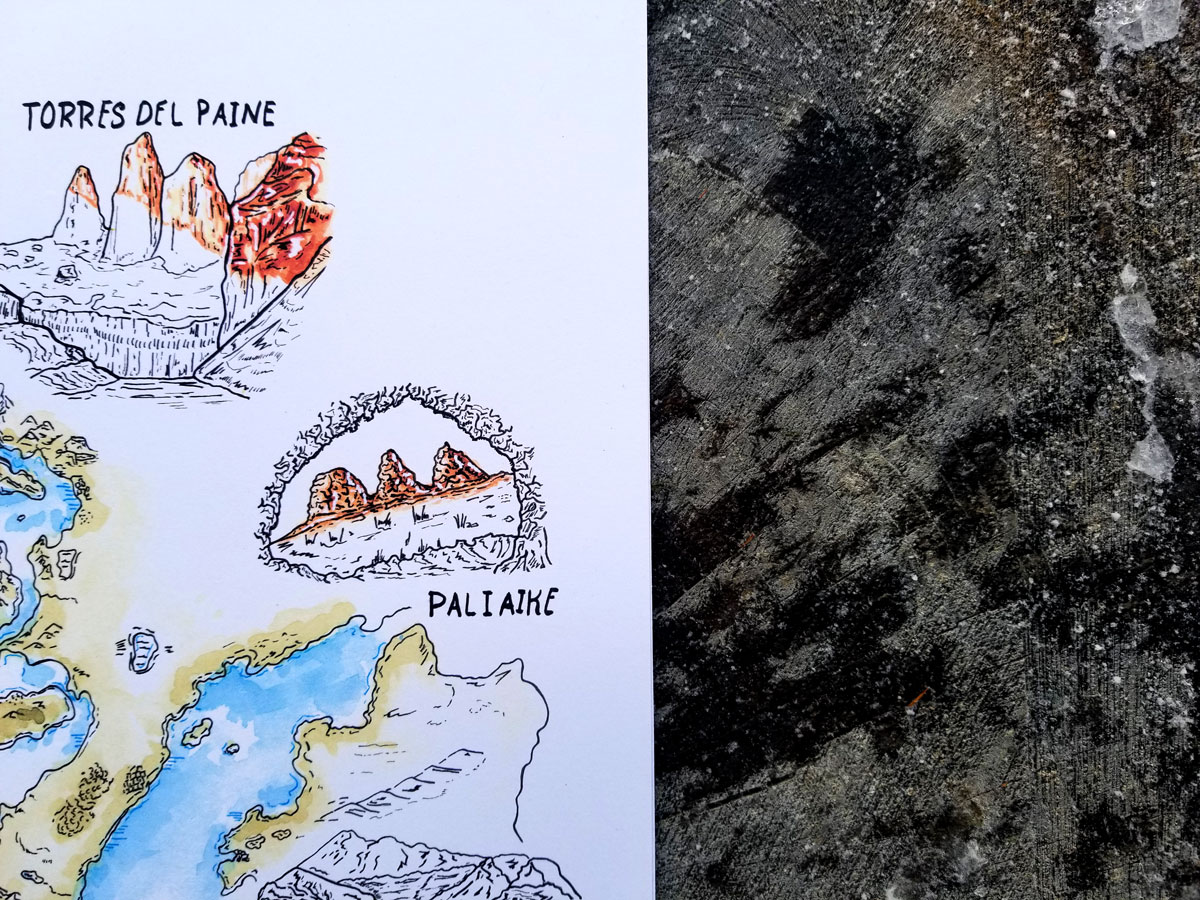 TORRES DEL PAINE
PALI AIKE